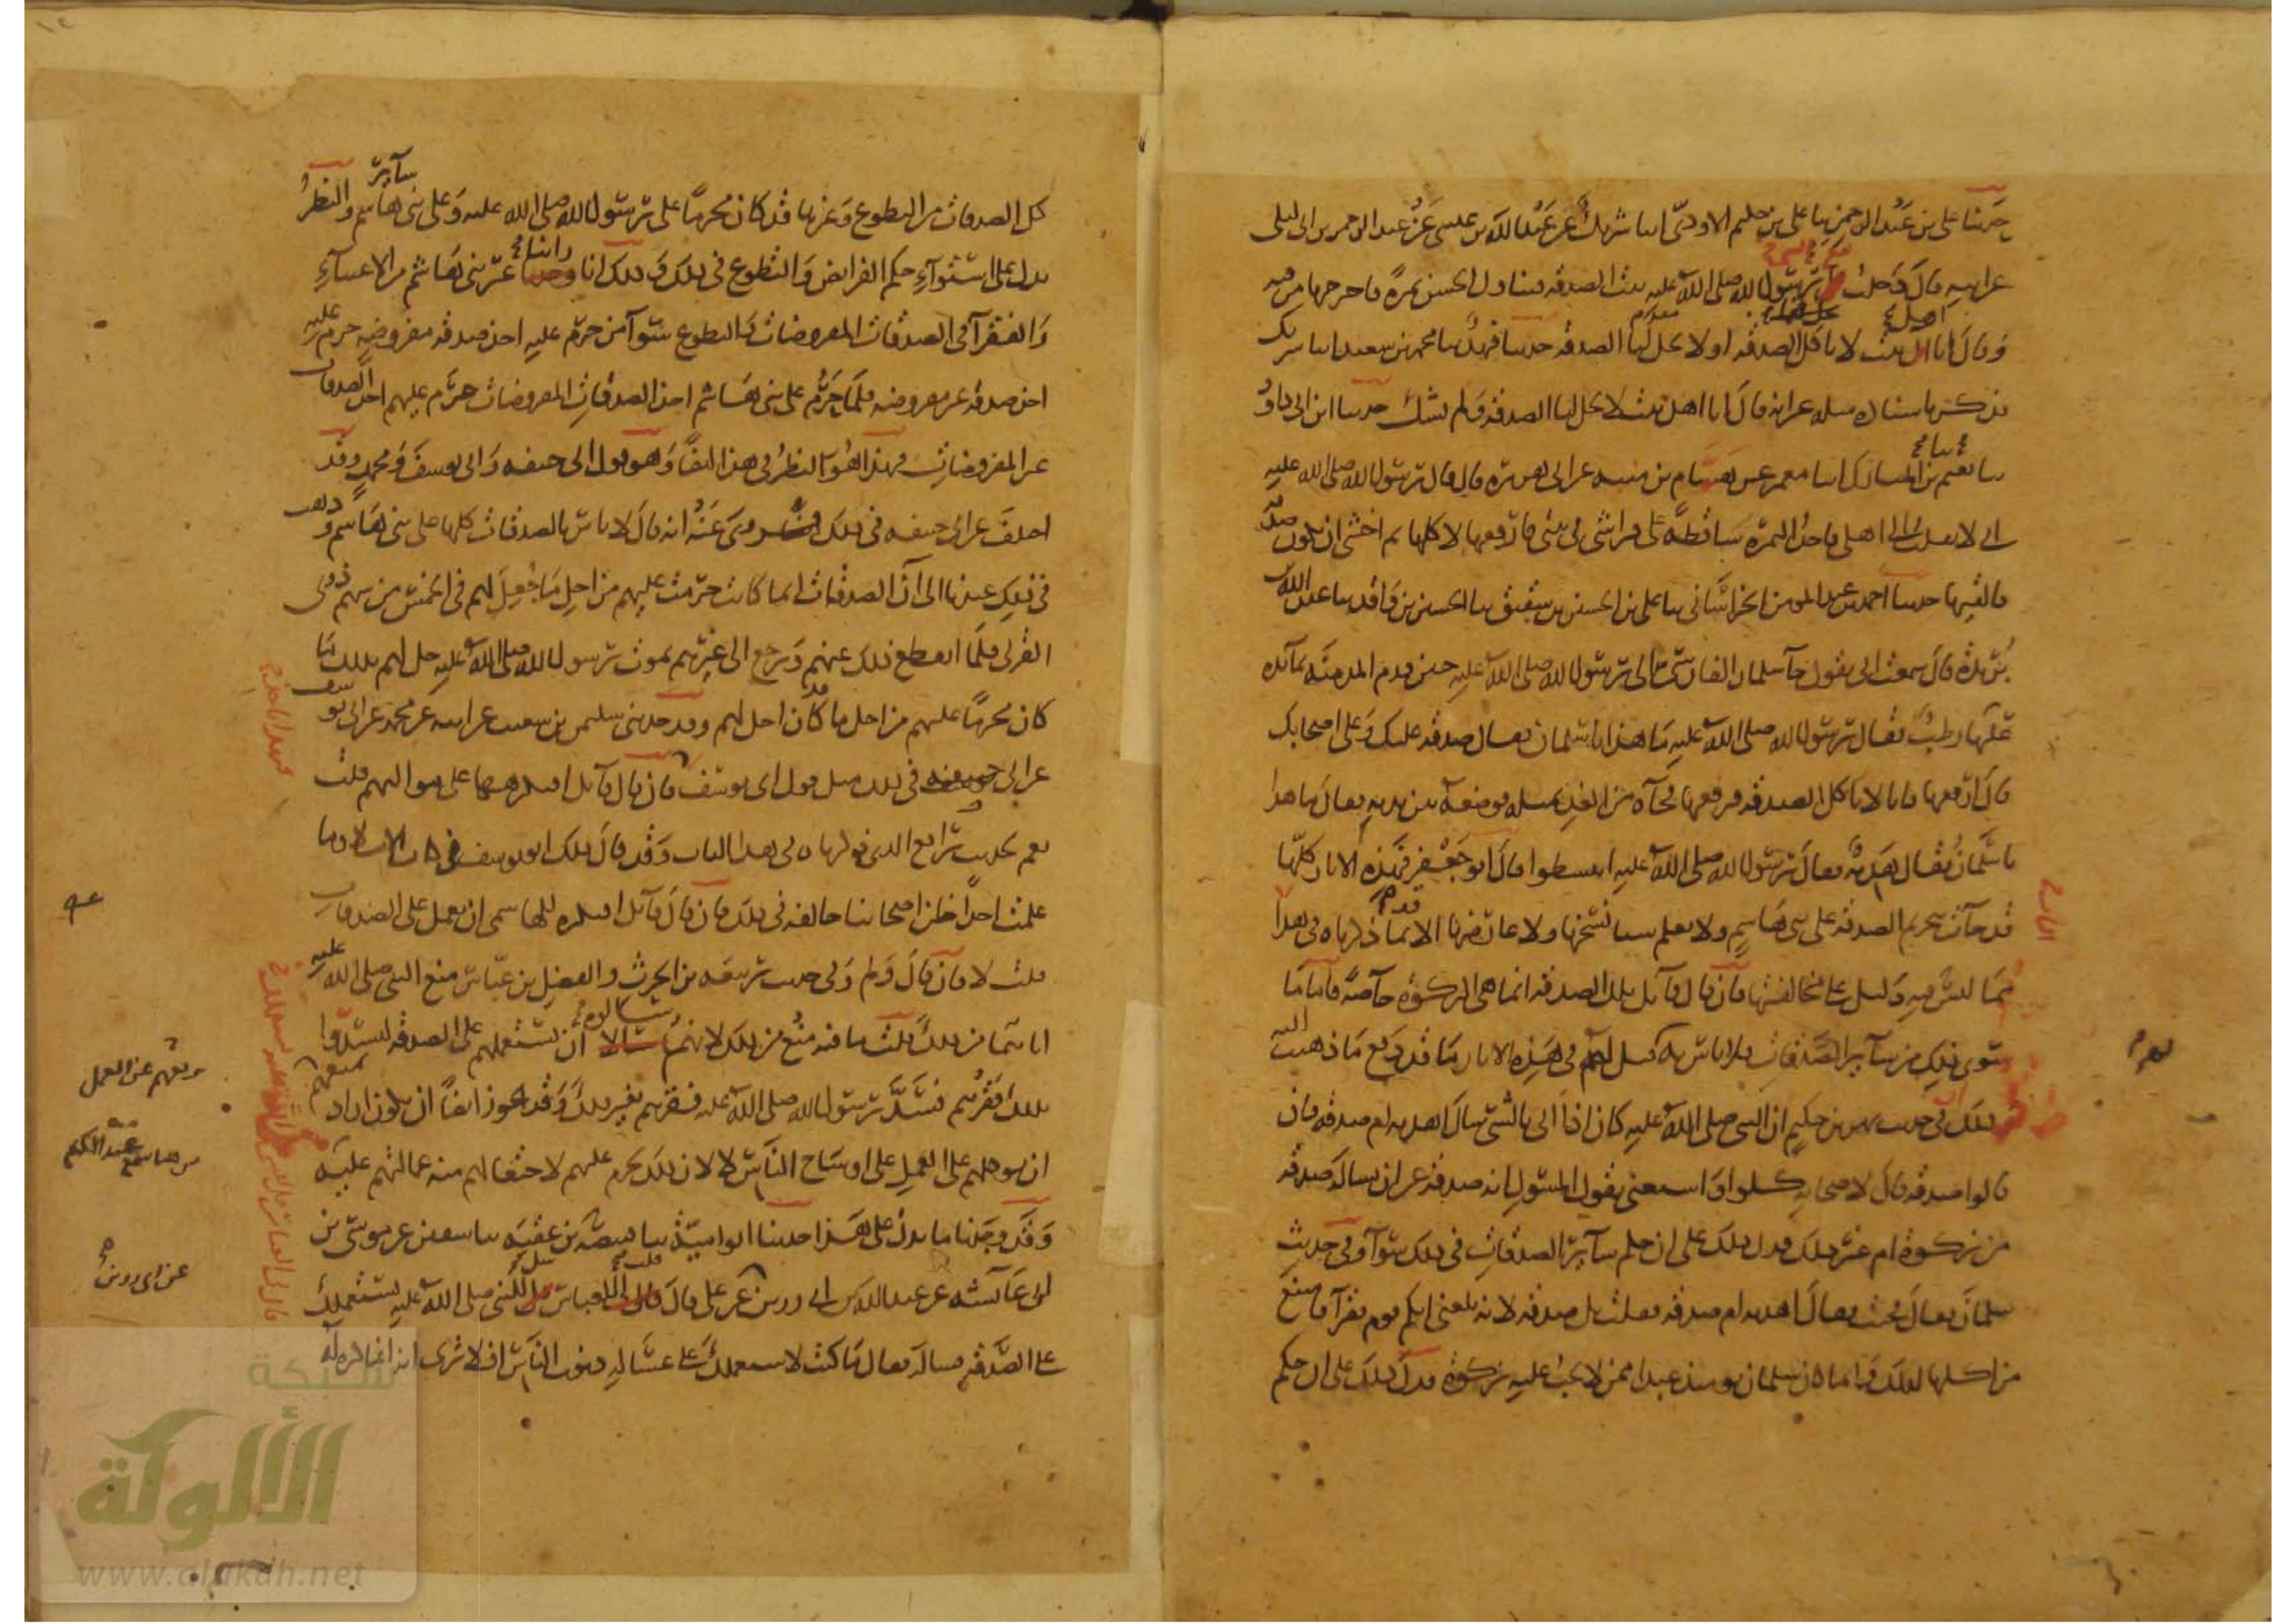 حدثنا علي بن عبد الرحمن ثنا علي بن حكيم الاودي انبا شريك عن عبد الله بن عيسى عن عبد الرحمن بن ابي ليلى
عن ابيه قال دخلت مع رسول الله صلى الله عليه بيت الصدقة فتناول الحسن تمرة فاخرجها من فيه
وقال انا اهل بيت لا تحل لنا الصدقة حدثنا فهد ثنا محمد بن سعيد انبا شريك
فذكر باسناده مثله غير انه قال انا اهل بيت لا تحل لنا الصدقة ولم يشك حدثنا ابن ابي داود
ثنا نعيم ثنا ابن المبارك انبا معمر عن همام بن منبه عن ابي هريرة قال قال رسول الله صلى الله عليه
اني لانقلب الى اهلي فاجد التمرة ساقطة على فراشي في بيتي فارفعها لاكلها ثم اخشى ان تكون صدقة
فالقيها حدثنا احمد بن عبد المومن الخراساني ثنا علي بن الحسن بن شقيق ثنا الحسين بن واقد ثنا عبد الله بن
بريدة قال سمعت ابي يقول جآ سلمان الفارسي الى رسول الله صلى الله عليه حين قدم المدينة بمآئدة
عليها رطب فقال رسول الله صلى الله عليه ما هذا يا سلمان فقال صدقة عليك وعلى اصحابك
قال ارفعها فانا لا ناكل الصدقة فرفعها فجآه من الغد بمثله فوضعه بين يديه فقال ما هذا
يا سلمان فقال هدية فقال رسول الله صلى الله عليه ابسطوا قال ابو جعفر فهذه الاثار كلها
قد جآت بتحريم الصدقة على بني هاشم ولا نعلم شيئا نسخها ولا عارضها الا ما قد ذكرناه في هذا
مما ليس فيه دليل على مخالفتها فان قال قآئل تلك الصدقة انما هي الزكوة خآصة فاما ما
سوى ذلك من سآئر الصدقات فلا باس به قيل لهم في هذه الاثار ما قد دفع ما ذهبت اليه
وذلك في حديث بهز بن حكيم ان النبي صلى الله عليه كان اذا اتي بالشي سال اهدية ام صدقة فان
قالوا صدقة قال لاصحابه كلوا واستغنى بقول المسول انه صدقة عن ان يساله صدقة
من زكوة ام غير ذلك فدل ذلك على ان حكم سآئر الصدقات في ذلك سوآ وفي حديث
سلمان فقال فجئت فقال اهدية ام صدقة فقلت بل صدقة لانه بلغني انكم قوم فقرآ فامتنع
من اكلها لذلك وانما كان سلمان يومئذ عبدا ممن لا يجب عليه زكوة فدل ذلك على ان حكم
كل الصدقات من التطوع وغيرها قد كان محرما على رسول الله صلى الله عليه وعلى سآئر بني هاشم والنظر
يدل على استوآء حكم الفرائض والتطوع في ذلك وذلك انا راينا غير بني هاشم من الاغنيآء
والفقرآ في الصدقات المفروضات والتطوع سوآ من حرم عليه اخذ صدقة مفروضة حرم عليه
اخذ صدقة غير مفروضة فلما حرم على بني هاشم اخذ الصدقات المفروضات حرم عليهم اخذ الصدقات
غير المفروضات فهذا هو النظر في هذا الباب وهو قول ابي حنيفة وابي يوسف ومحمد وقد
اختلف عن ابي حنيفة في ذلك فروي عنه انه قال لا باس بالصدقات كلها على بني هاشم وذهب
في ذلك عندنا الى ان الصدقات انما كانت حرمت عليهم من اجل ما جعل لهم في الخمس من سهم ذوي
القربى فلما انقطع ذلك عنهم ورجع الى غيرهم بموت رسول الله صلى الله عليه حل لهم بذلك ما
كان محرما عليهم من اجل ما قد كان احل لهم وقد حدثني سليمن بن شعيب عن ابيه عن محمد عن ابي يوسف
عن ابي حنيفة في ذلك مثل قول ابي يوسف فان قال قآئل افتكرهها على مواليهم قلت
نعم لحديث ابي رافع الذي قد ذكرناه في هذا الباب وقد قال ذلك ابو يوسف في كتاب الاملا وما
علمت احدا من اصحابنا خالفه في ذلك فان قال قآئل افتكره للهاشمي ان يعمل على الصدقات
قلت لا فان قال ولم وفي حديث ربيعة بن الحرث والفضل بن عباس منع النبي صلى الله عليه
اياهما من ذلك قلت ما فيه منع من ذلك لانهم سالوه ان يستعملهم على الصدقة ليسدوا
بذلك فقرهم فسد رسول الله صلى الله عليه فقرهم بغير ذلك وقد يجوز ايضا ان يكون اراد بمنعهم
ان يوكلهم على العمل على اوساخ الناس لا لان ذلك يحرم عليهم لاجتعالهم منه عمالتهم عليه
وقد وجدنا ما يدل على هذا حدثنا ابو امية ثنا قبيصة بن عقبة ثنا سفين عن موسى بن
ابي عآئشة عن عبد الله بن ابي رزين عن علي قال قلت للعباس سل النبي صلى الله عليه يستعملك
على الصدقة فساله فقال ما كنت لاستعملك على غسالة ذنوب الناس افلا ترى انه انما كره له
عن ابي رزين
شبكة
الألوكة
www.alukah.net